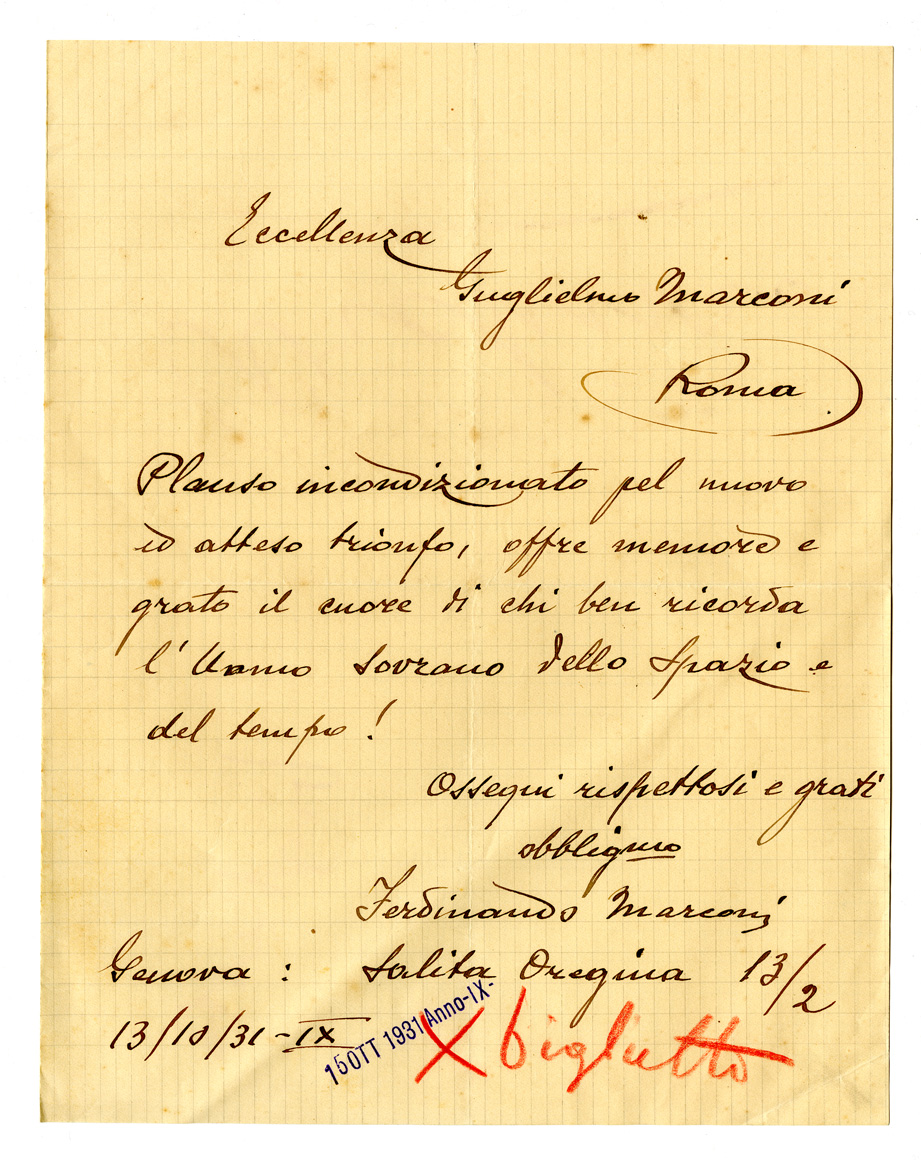 Eccellenza
Guglielmo Marconi
Roma
Plauso incondizionato pel nuovo
ed atteso trionfo, offre memore e
grato il cuore di chi ben ricorda
l'Uomo sovrano dello spazio e
del tempo!
Ossequi rispettosi e grati
obbligmo
Ferdinando Marconi
Genova: Salita Oregina 13/2
13/10/31-IX
15 OTT 1931 Anno-IX-
X biglietto